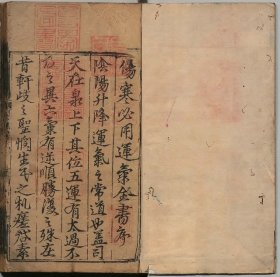 傷寒必用運氣全書序
陰陽升降運氣之常道也盖司
天在泉上下其位五運有太過不
及之異六氣有逆順勝復之殊在
昔軒岐之聖憫生民之札瘥啓素